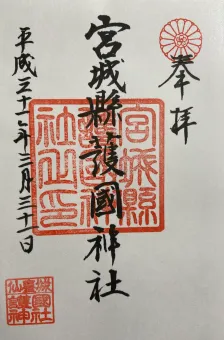 奉拝
宮城縣護國神社
平成三十一年三月三十一日
宮城縣
護國神
社之印